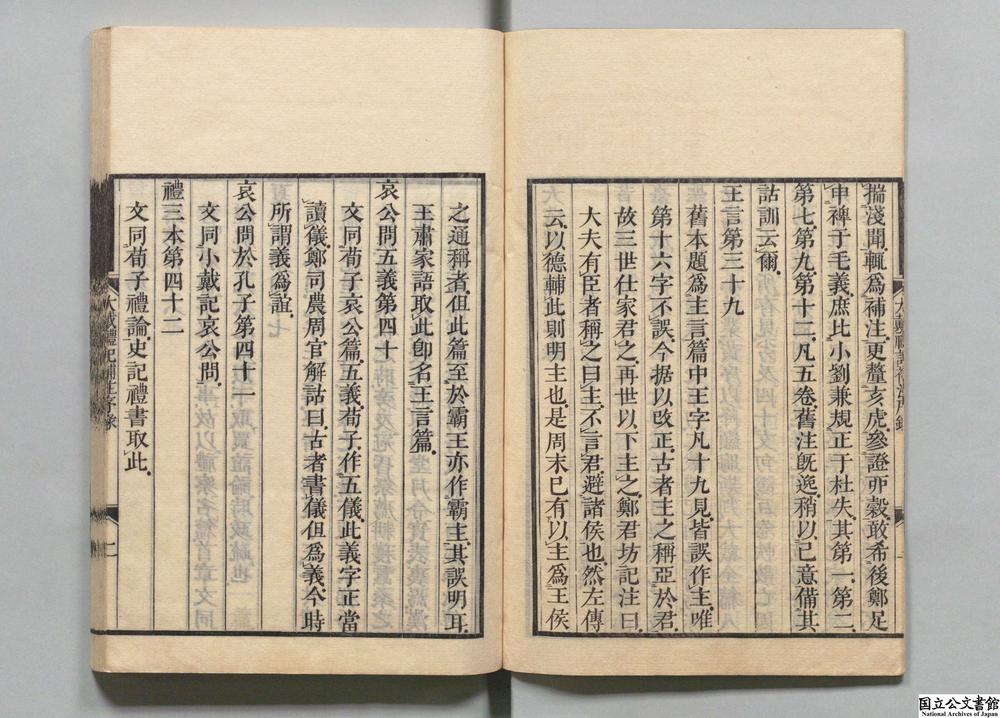 揣淺聞輒爲補注更釐亥虎參證卯穀敢希後鄭足
申裨于毛義庶比小劉兼規正于杜失其第一第二
第七第九第十二凡五卷舊注旣逸稍以己意備其
詁訓云爾
王言第三十九
舊本題爲主言篇中王字凡十九見皆誤作主唯
第十六字不誤今据以改正古者主之稱亞於君
故三世仕家君之再世以下主之鄭君坊記注曰
大夫有臣者稱之曰主不言君避諸侯也然左傳
云以德輔此則明主也是周末已有以主爲王侯
之通稱者但此篇至於霸王亦作霸主其誤明耳
王肅家語取此卽名王言篇
哀公問五義第四十
文同荀子哀公篇五義荀子作五儀此義字正當
讀儀鄭司農周官解詁曰古者書儀但爲義今時
所謂義爲誼
哀公問於孔子第四十一
文同小戴記哀公問
禮三本第四十二
文同荀子禮論史記禮書取此
大戴禮記補注序錄
二
国立公文書館
National Archives of Japan